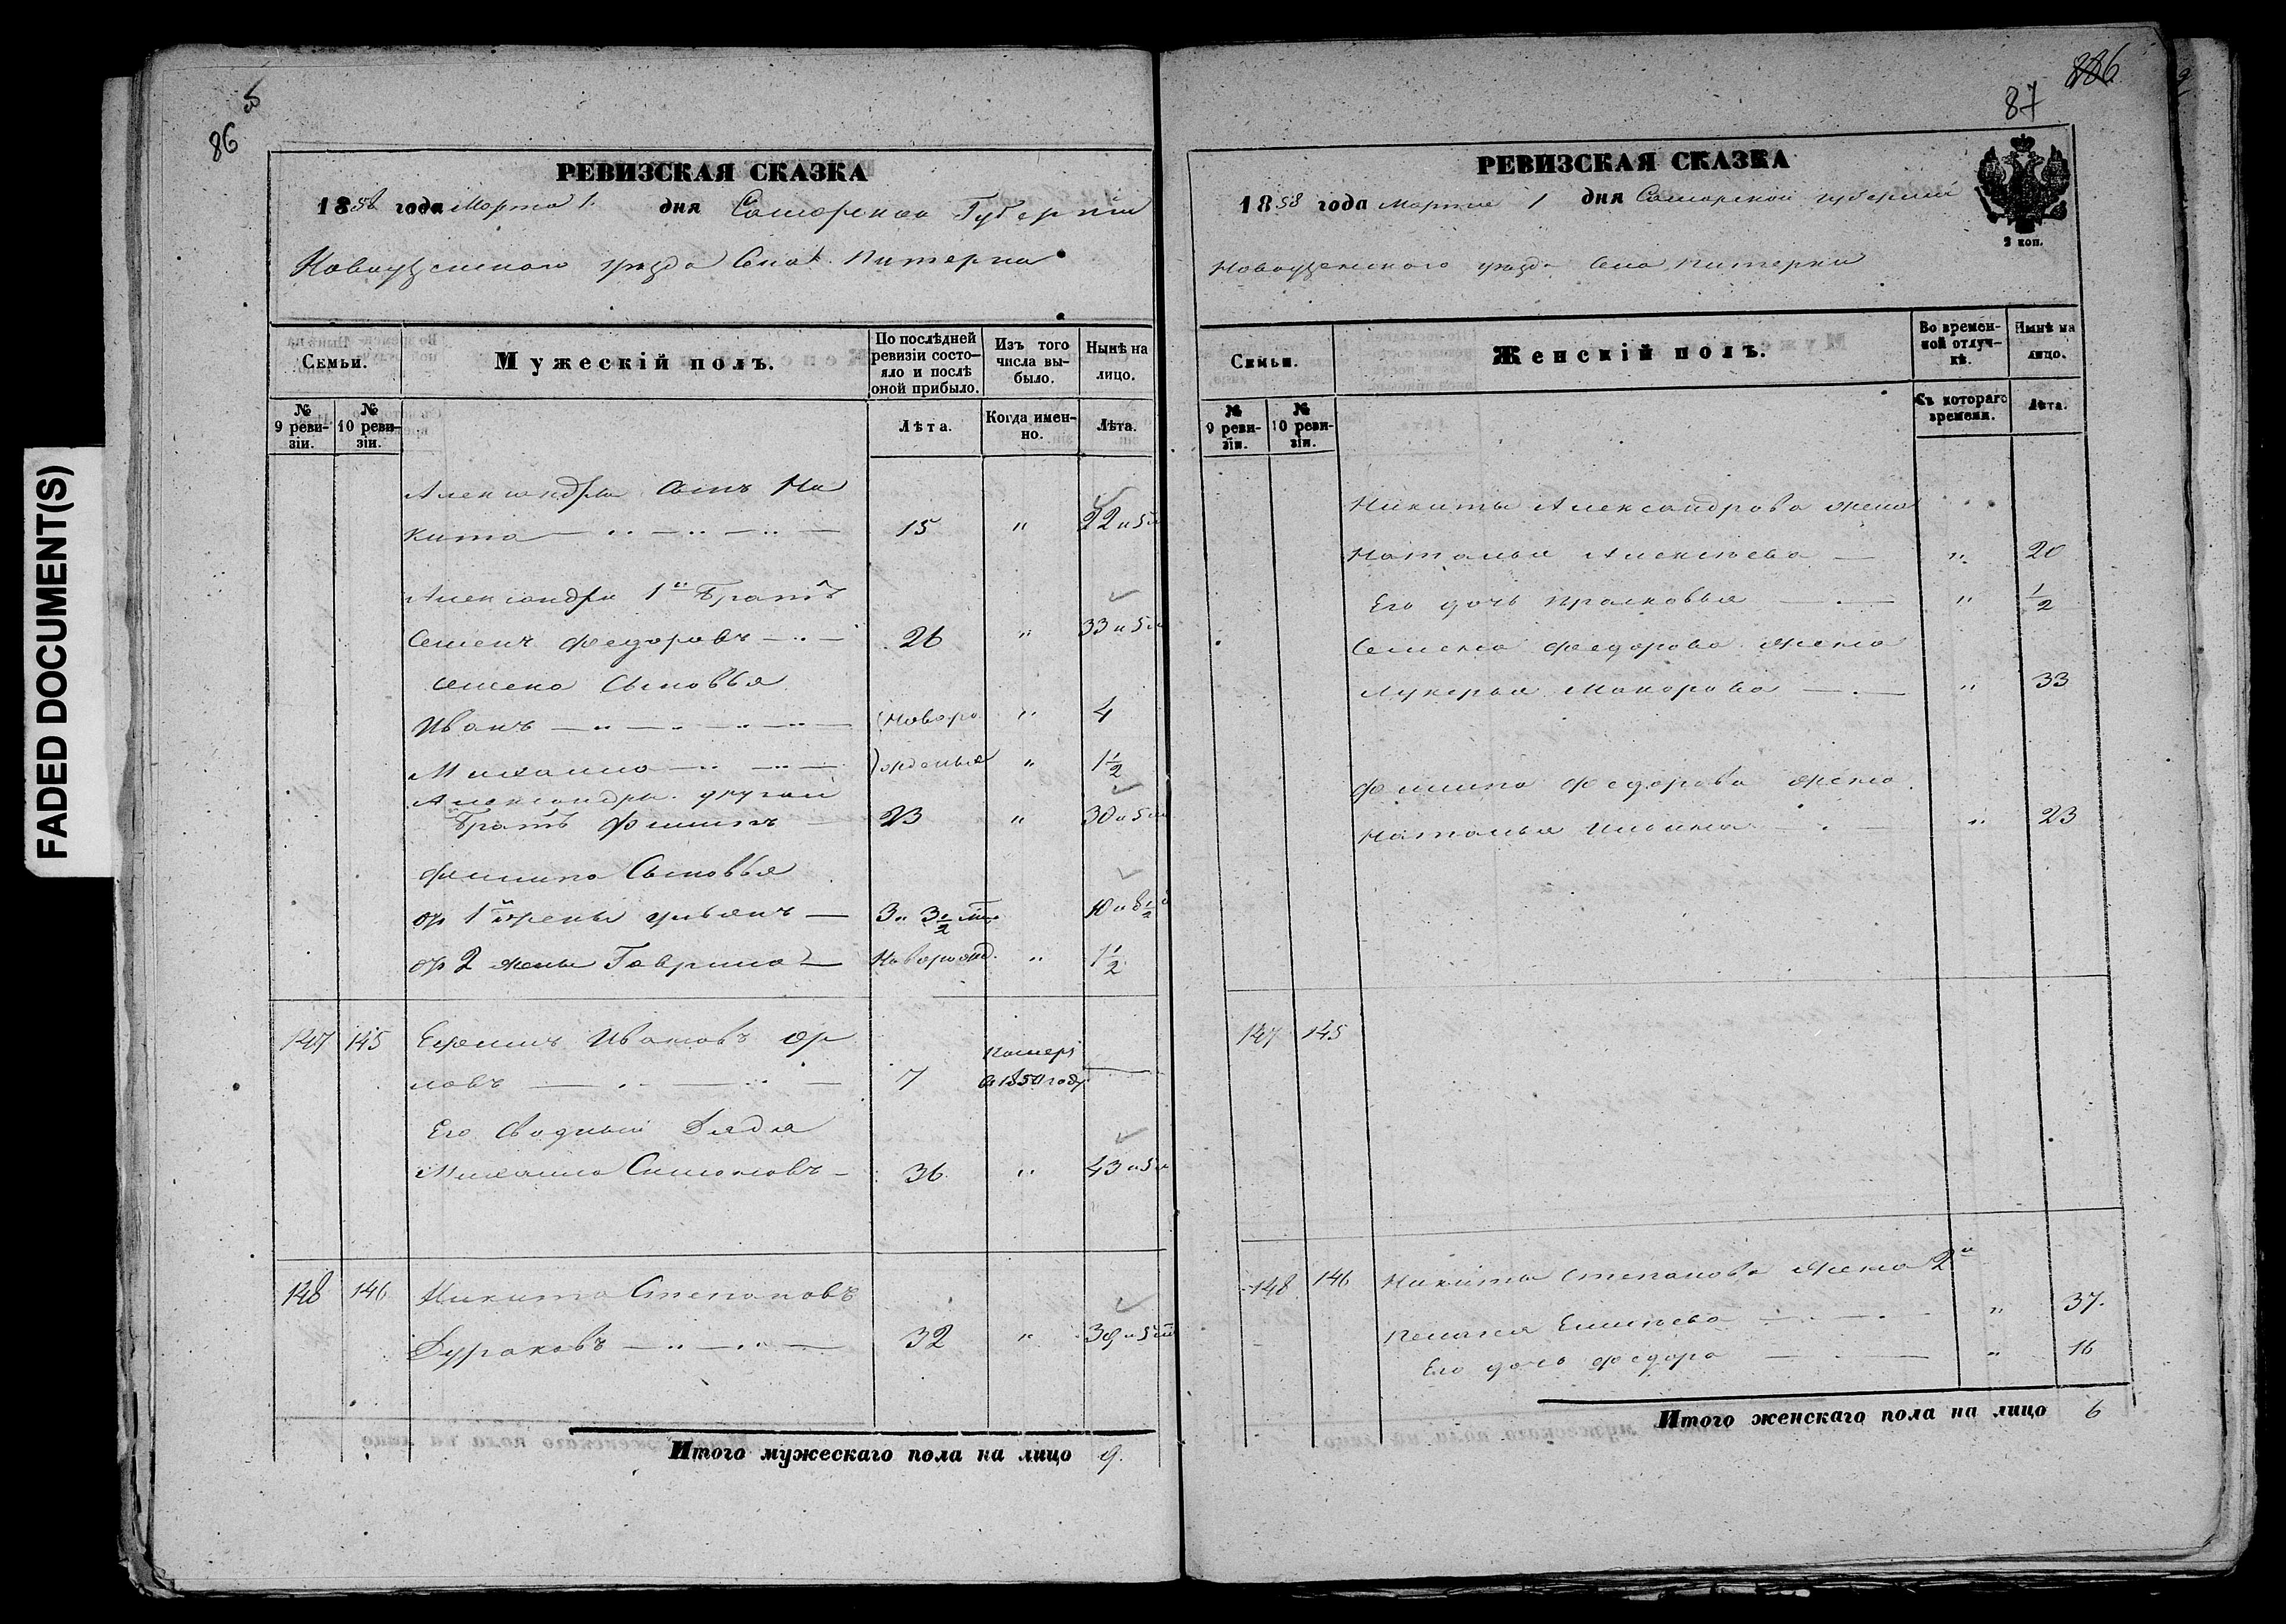 FADED DOCUMENT(S)
5
86
РЕВИЗСКАЯ СКАЗКА
1858 года Марта 1. дня Самарской Губерніи
Новоузенскаго уѣзда Села Питерки
Семьи.
Мужескій полъ.
По послѣдней ревизіи состо-
яло и послѣ
оной прибыло.
Изъ того
числа вы-
было.
Нынѣ на
лицо.
№
9 реви-
зіи.
№
10 реви-
зіи.
Лѣта.
Когда имен-
но.
Лѣта.
Александра сынъ Ни
кита 15 " 22 и 5 м
Александра 1й Братъ
Семенъ Федоровъ 26 " 33 и 5 м
Семена Сыновья
Иванъ (новоро " 4
Михаило )жденые " 1 1/2
Александра другой
Братъ Филипъ 23 " 30 и 5 м
Филипа Сыновья
от 1й жены Ульянъ 3 и 3 1/2 м 10 и 8 1/2
от 2 жены Гаврила Новорожд. " 1 1/2
147 145 Ефимъ Ивановъ Ор
ловъ 7 Померъ
в 1850 году
Его Сводный Дядя
Михаило Симоновъ 36 " 43 и 5 м
148 146 Никита Степановъ
Дураковъ 32 " 39 и 5 м
Итого мужескаго пола на лицо 9.
886
87
РЕВИЗСКАЯ СКАЗКА
1858 года Марта 1 дня Самарской губерніи
2 коп.
Новоузенскаго уѣзда Села Питерки
Семьи.
Женскій полъ.
Во времен-
ной отлуч-
кѣ.
Нынѣ на
лицо.
№
9 реви-
зіи.
№
10 реви-
зіи.
Съ котораго
времени.
Лѣта.
Никиты Александрова жена
Наталья Алексѣева " 20
Его дочь Прасковья " 1/2
Семена Федорова жена
Лукерья Макарова " 33
Филипа Федорова жена
Наталья Ильина " 23
147 145
148 146 Никиты Степанова жена 2я
Пелагея Елисѣева " 37.
Его дочь Федора " 16
Итого женскаго пола на лицо 6